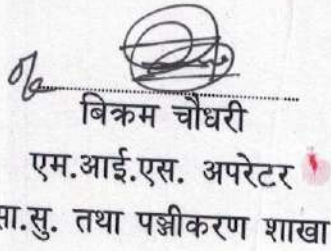 बिक्रम चौधरी
एम.आई.एस. अपरेटर
सा.सु. तथा पञ्जीकरण शाखा